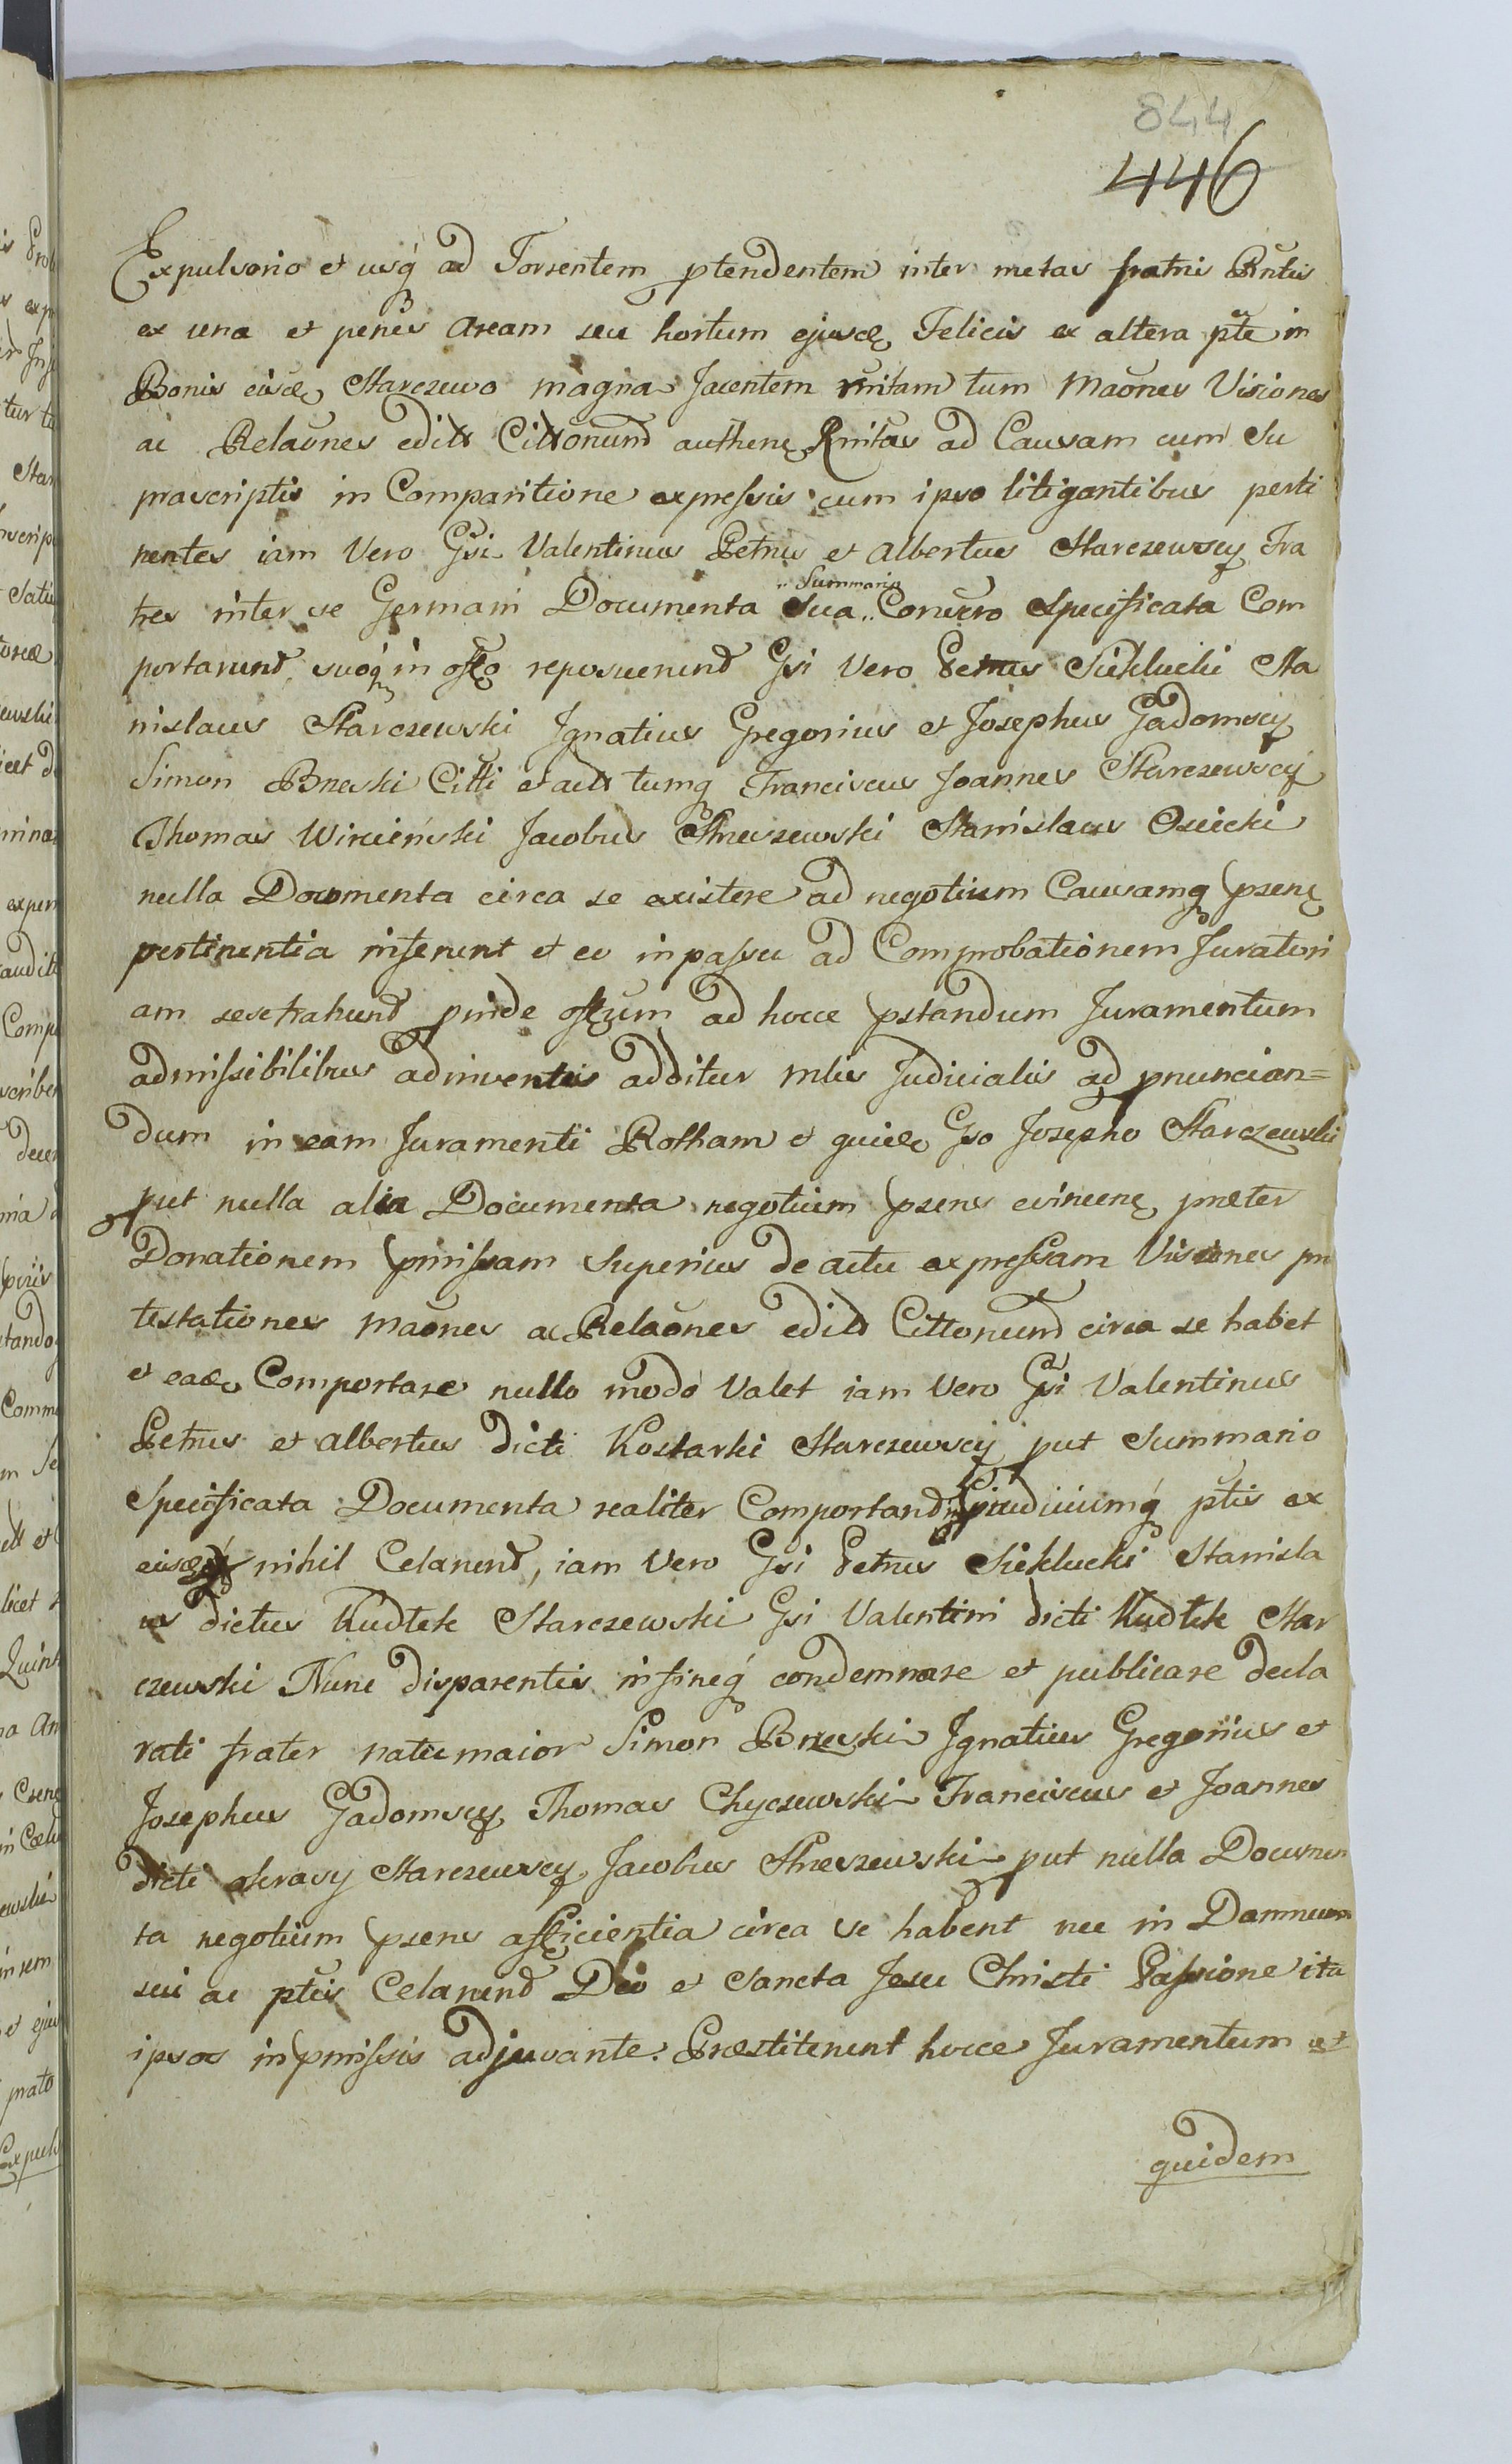 844
446
Expulsorio et usq ad Torrentem ptendentem inter metas fratris Rntis
ex una et penes Aream seu hortum ejusd Felicis ex altera pte in
Bonis eisd Starczewo magna Jacentem Rnitam tum Maones Visiones
ac Relaones edit Cittonum authen Rnitas ad Causam cum Su
prascriptis in Comparitione expressis cum ipso litigantibus perti
nentes iam Vero Gsi Valentinus Petrus et Albertus Starczewscy Fra
tres inter se Germani Documenta Sua Summario Converso Specificata Com
portarund suoq in offo reposuerund Gsi Vero Petrus Sieklucki Sta
nislaus Starczewski Ignatius Gregorius et Josephus Gadomscy
Simon Brzeski Citti et act tumq Franciscus Joannes Starczewscy
Thomas Jacobus Strzeszewski Stanislaus Osiecki
nulla Documenta circa se existere ad negotium Causamq psens
pertinentia inserunt et eo in passu ad Comprobationem Juratori
am sese trahund pinde offum ad hocce pstandum Juramentum
admissibilibus adinventis additur Mlis Judicialis ad pnuncian=
dum in eam Juramenti Rotham et quid Gso Josepho Starczewski
put nulla alia Documenta negotium psens evincens præter
Donationem pmissam Superius de actu expressam Visiones pro
testationes Maones ac Relaones edit Cittonum circa se habet
et ead Comportare nullo modo Valet iam Vero Gsi Valentinus
Petrus et Albertus dicti Kostarki Starczewscy put Summario
Specificata Documenta realiter Comportand pjudiciumq ptis ex
eisd nihil Celarend, iam Vero Gsi Petrus Siklucki Stanisla
us dictus Kudłek Starczewski Gsi Valentini dicti Kudłek Star
czewski Nunc disparentis insineq condemnare et publicare decla
rati frater natu maior Simon Brzeski Ignatius Gregorius et
Josephus Gadomscy Thomas Chyczewski Franciscus et Joannes
dicti Starczewscy Jacobus Strzeszewski put nulla Documen
ta negotium psens afficientia circa se habent nec in Damnum
sui ac ptis Celarend Deo et Sancta Jesu Christi Passione ita
ipsos in pmissis adjuvante. Præstiterunt hocce Juramentum et
quidem